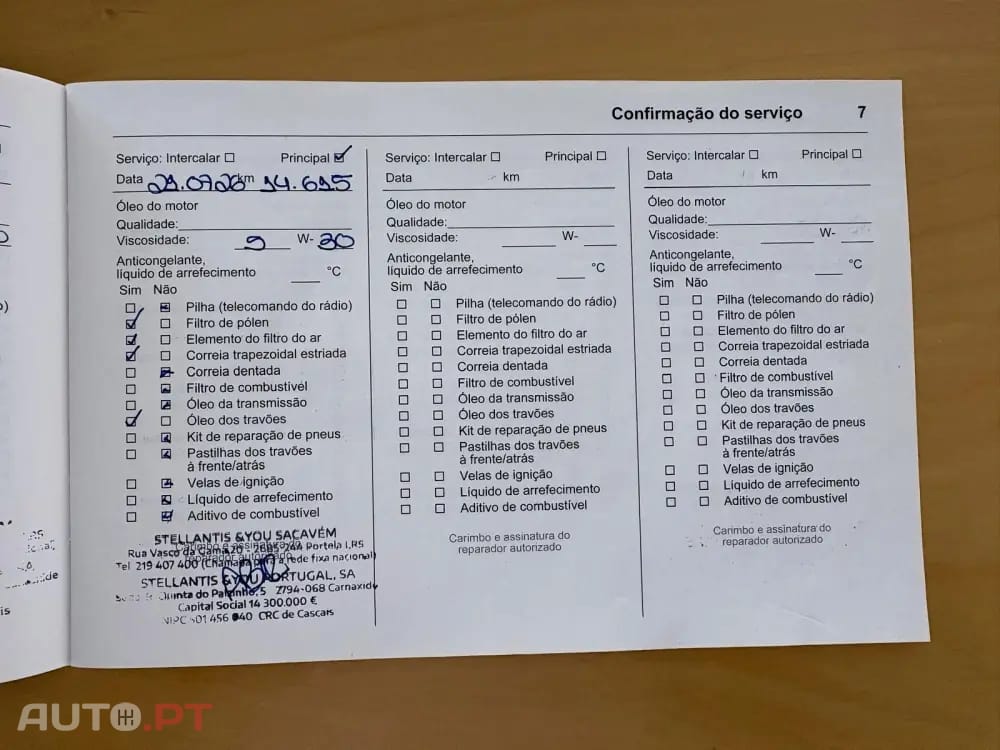 Confirmação do serviço 7
Serviço: Intercalar Principal
Data km 14.615
Óleo do motor
Qualidade:
Viscosidade: W- 30
Anticongelante,
líquido de arrefecimento °C
Sim Não
Pilha (telecomando do rádio)
Filtro de pólen
Elemento do filtro do ar
Correia trapezoidal estriada
Correia dentada
Filtro de combustível
Óleo da transmissão
Óleo dos travões
Kit de reparação de pneus
Pastilhas dos travões
à frente/atrás
Velas de ignição
Líquido de arrefecimento
Aditivo de combustível
Carimbo e assinatura do
reparador autorizado
STELLANTIS &YOU SACAVÉM
Rua Vasco da Gama 20 - 2685-244 Portela LRS
Tel 219 407 400 (Chamada para a rede fixa nacional)
STELLANTIS &YOU PORTUGAL, SA
Quinta do 5 2794-068 Carnaxide
Capital Social 14 300.000 €
NIPC 501 456 CRC de Cascais
Serviço: Intercalar Principal
Data km
Óleo do motor
Qualidade:
Viscosidade: W-
Anticongelante,
líquido de arrefecimento °C
Sim Não
Pilha (telecomando do rádio)
Filtro de pólen
Elemento do filtro do ar
Correia trapezoidal estriada
Correia dentada
Filtro de combustível
Óleo da transmissão
Óleo dos travões
Kit de reparação de pneus
Pastilhas dos travões
à frente/atrás
Velas de ignição
Líquido de arrefecimento
Aditivo de combustível
Carimbo e assinatura do
reparador autorizado
Serviço: Intercalar Principal
Data km
Óleo do motor
Qualidade:
Viscosidade: W-
Anticongelante,
líquido de arrefecimento °C
Sim Não
Pilha (telecomando do rádio)
Filtro de pólen
Elemento do filtro do ar
Correia trapezoidal estriada
Correia dentada
Filtro de combustível
Óleo da transmissão
Óleo dos travões
Kit de reparação de pneus
Pastilhas dos travões
à frente/atrás
Velas de ignição
Líquido de arrefecimento
Aditivo de combustível
Carimbo e assinatura do
reparador autorizado
AUTO.PT